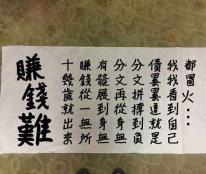 賺錢難
十幾歲就出來
賺錢從一無所
有發展到身無
分文再從身無
分文拼搏到負
債累累這就是
我我看到自己
都冒火…